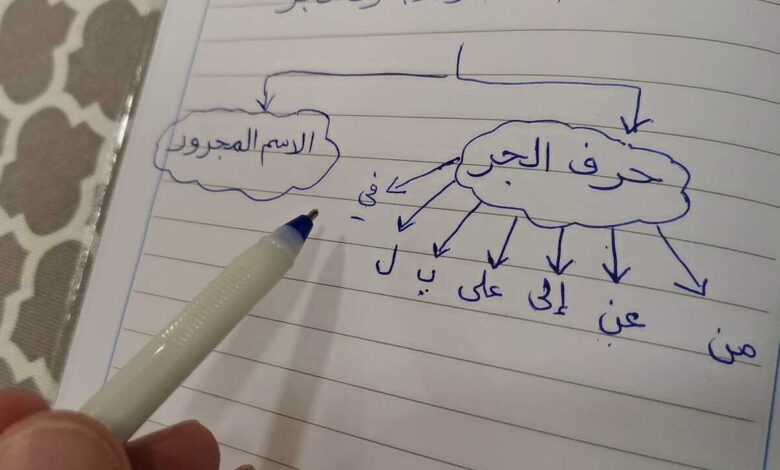 حرف الجر
الاسم المجرور
من
عن
إلى
على
ب
ل
في